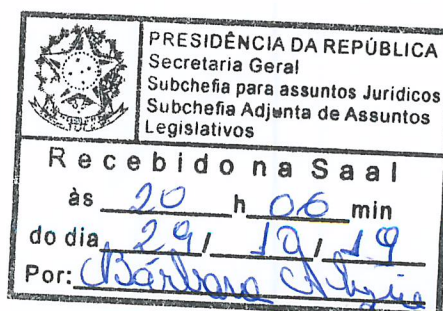 PRESIDÊNCIA DA REPÚBLICA
Secretaria Geral
Subchefia para assuntos Juridicos
Subchefia Adjunta de Assuntos
Legislativos
Recebido na Saal
às 20 h 06 min
do dia 29 / 10 / 19
Por: Bárbara